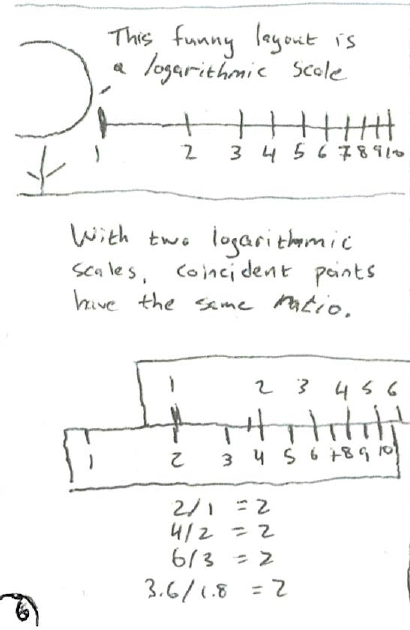 This funny layout is
a logarithmic scale
1 2 3 4 5 6 7 8 9 10
With two logarithmic
scales, coincident points
have the same ratio.
1 2 3 4 5 6
1 2 3 4 5 6 7 8 9 10
2/1 = 2
4/2 = 2
6/3 = 2
3.6/1.8 = 2
6